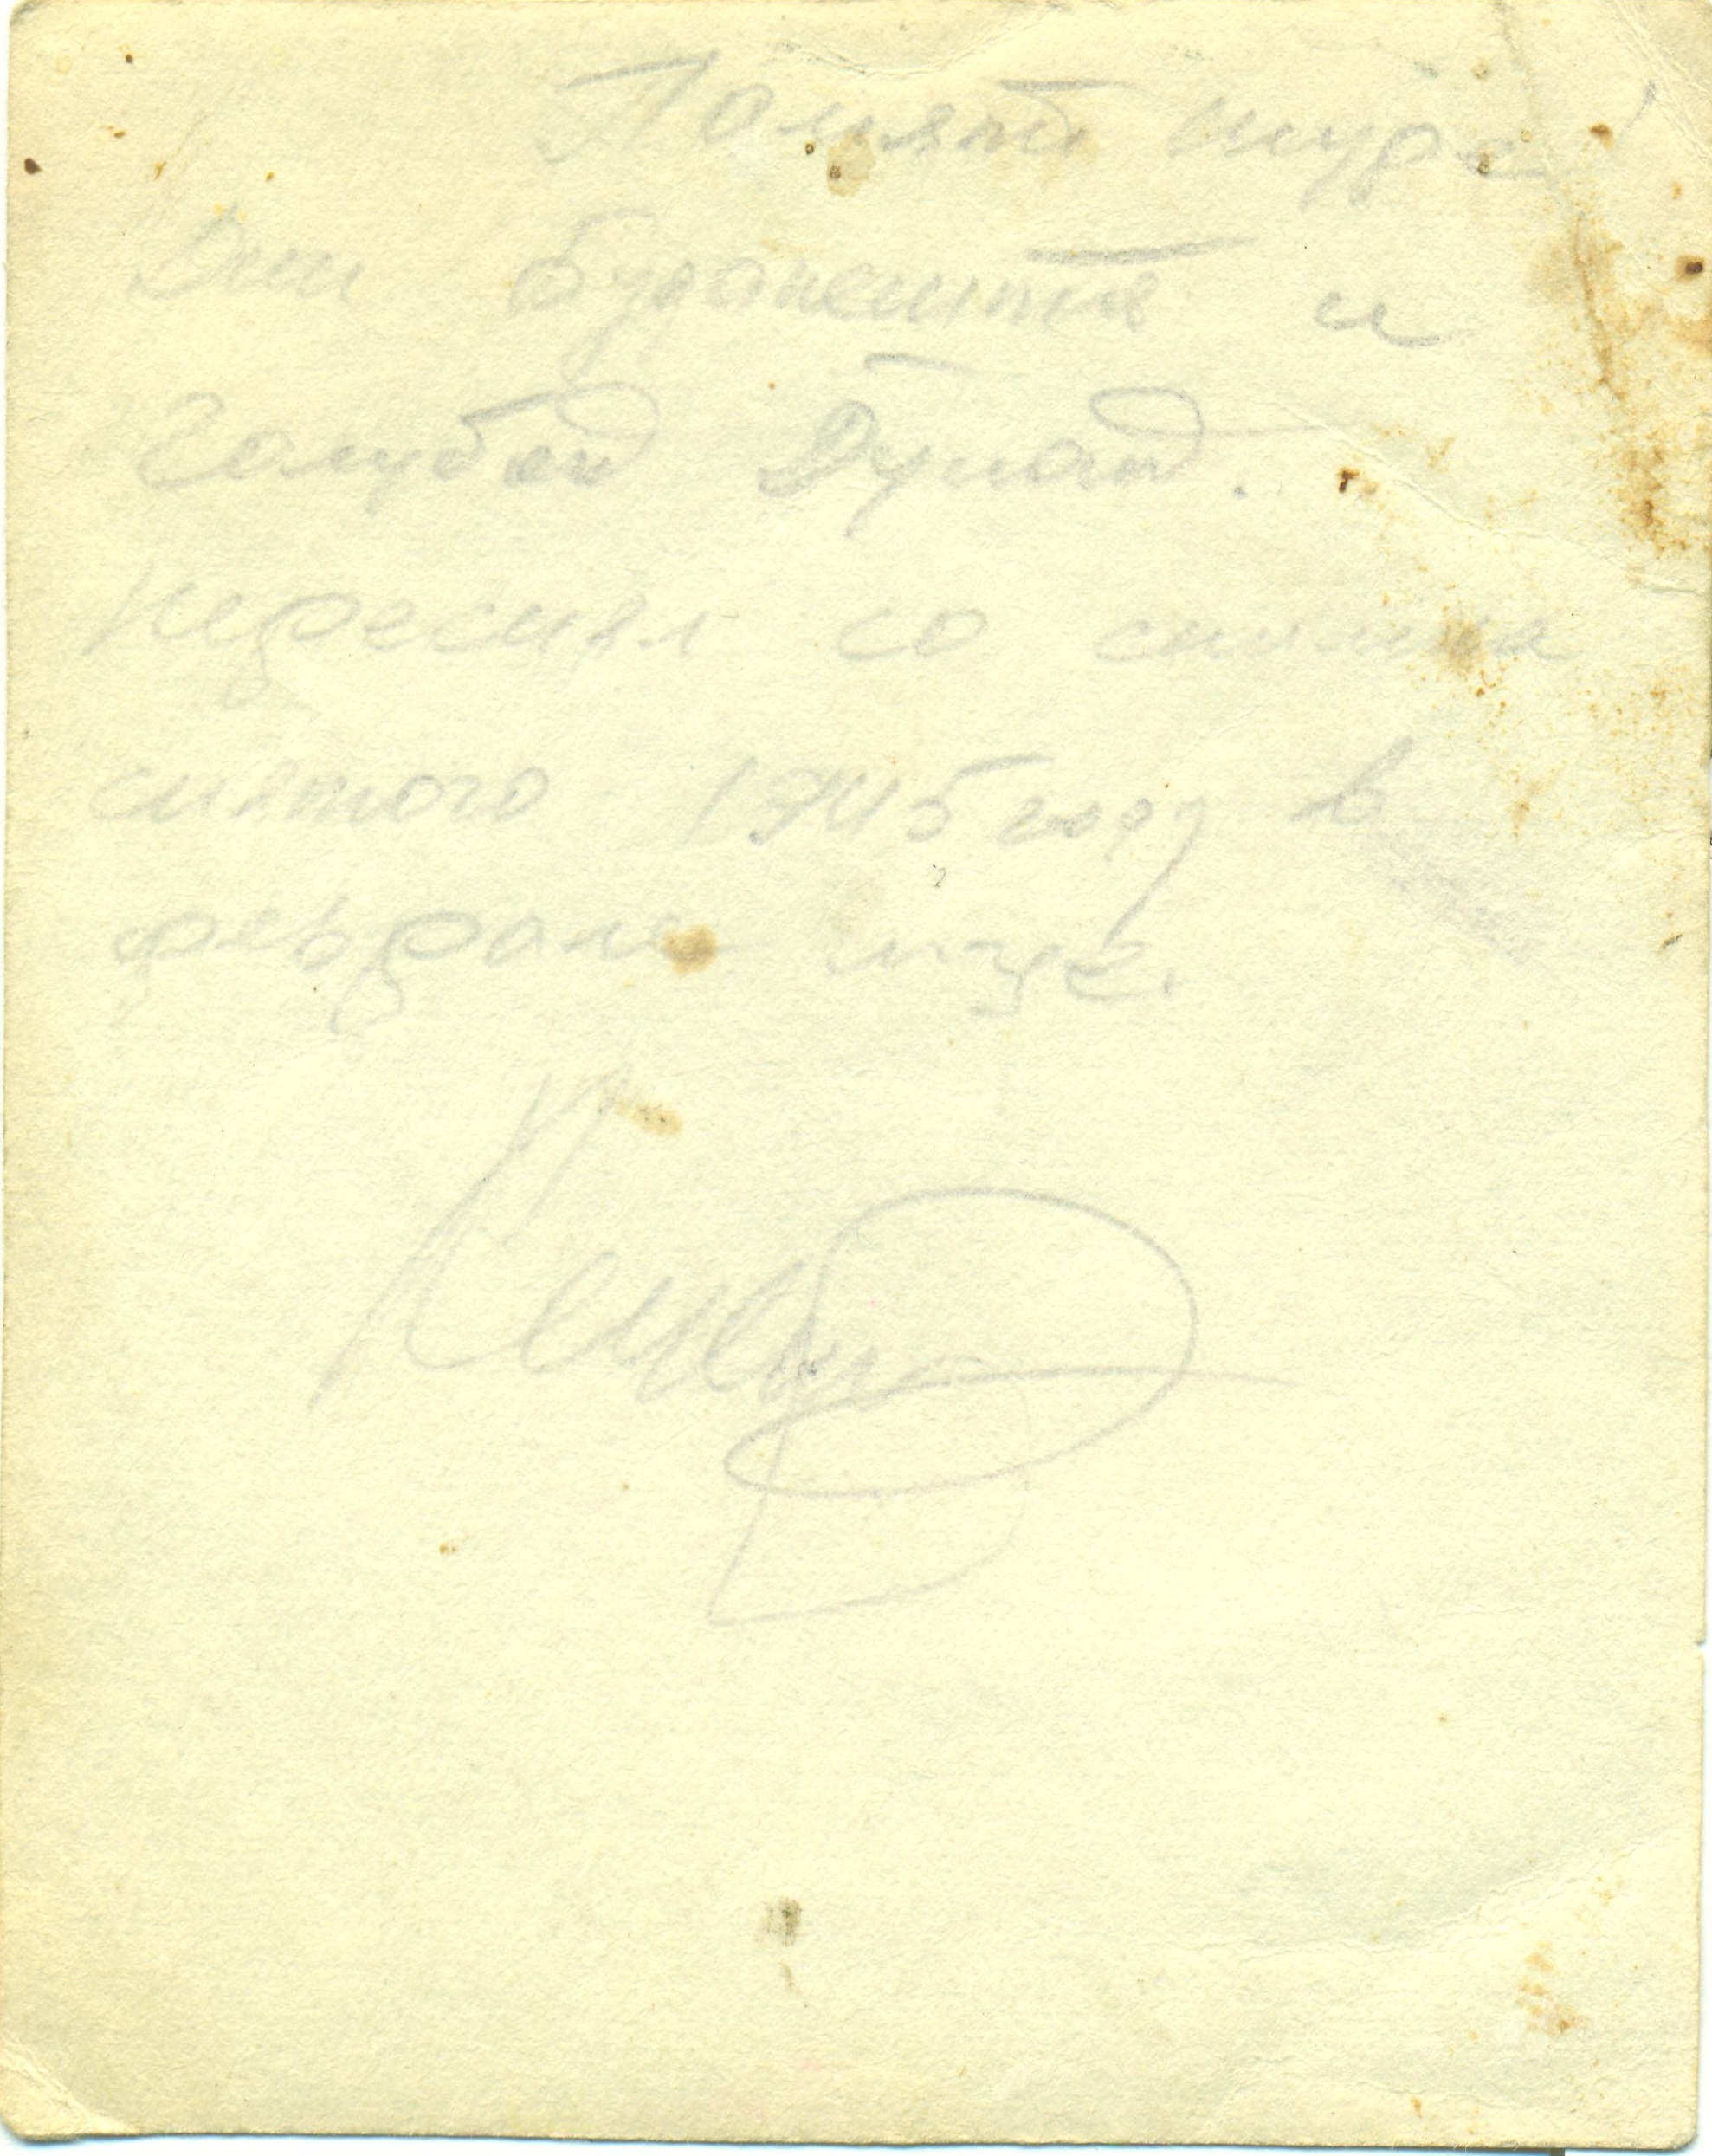 Помни Шура!
Дни Будапешта и
Голубой Дунай.
Переснял со снимка
снятого 1945 году в
феврале м-це.